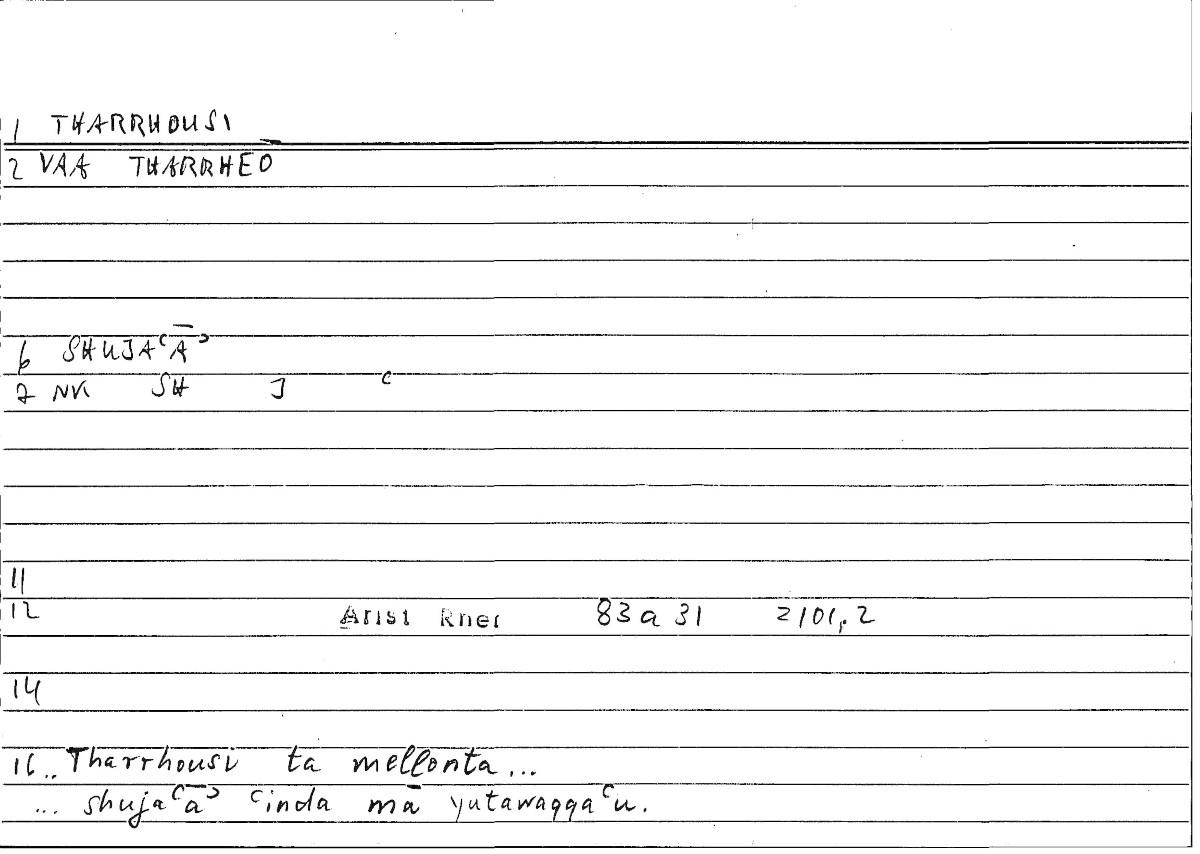 1 THARRHOUSI
2 VAA THARRHEŌ
6 SHUJAʿĀʾ
7 NK SH J ʿ
11
12 Arist Rhet 83a31 2101,2
14
16 .. Tharrhousi ta mellonta...
... shujaʿāʾ ʿinda mā yutawaqqaʿu.